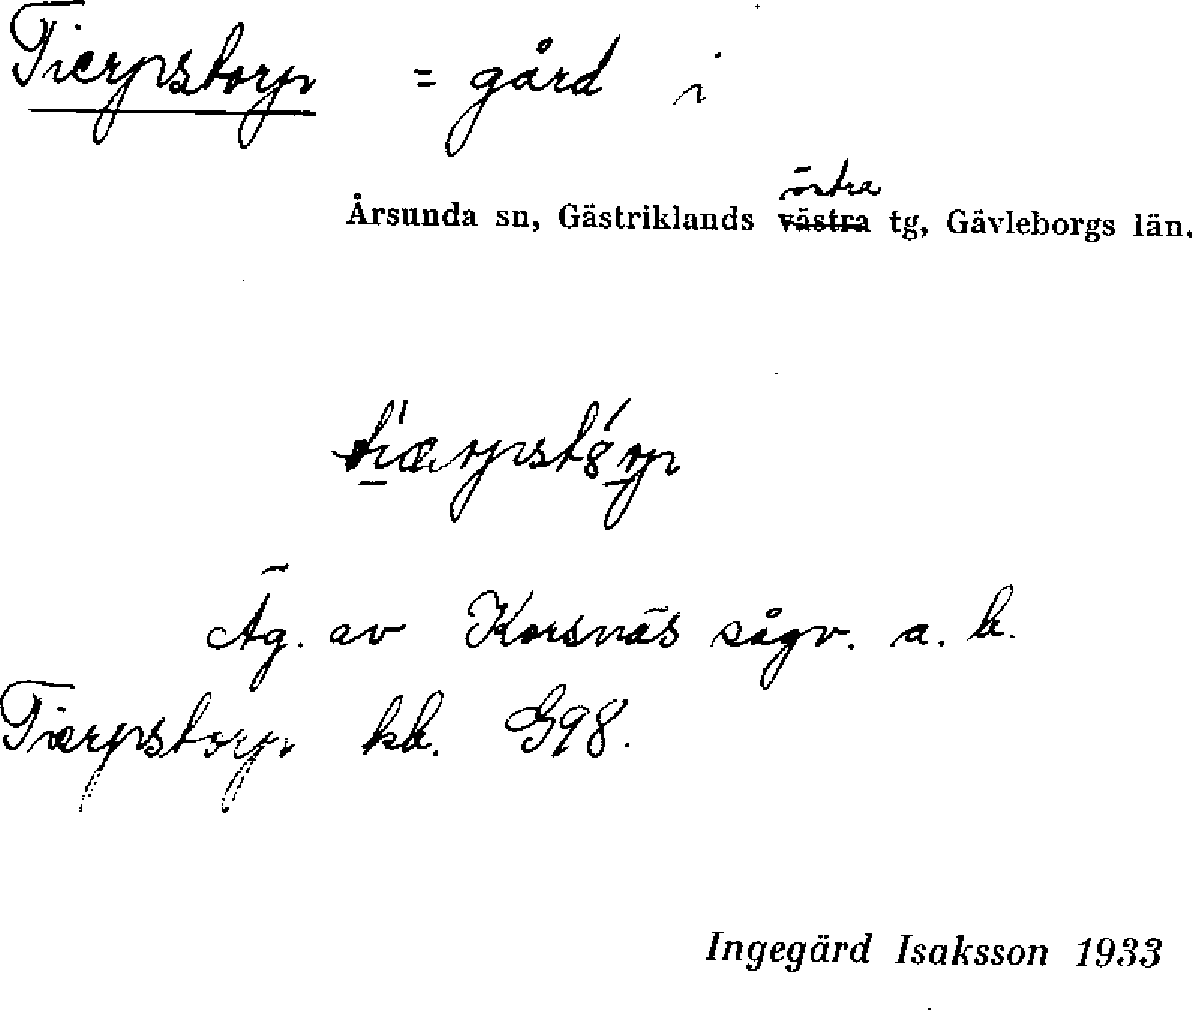 Tierpstorp = gård i
östra
Årsunda sn, Gästriklands västra tg, Gävleborgs län.
Äg. av Korsnäs sågv. a. b.
Tierpstorp kb. G98.
Ingegärd Isaksson 1933